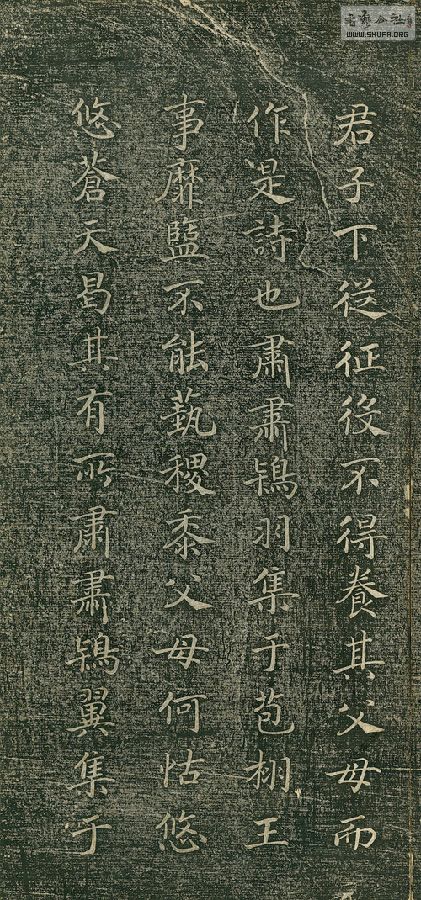 君子下從征役不得養其父母而
作是詩也肅肅鴇羽集于苞栩王
事靡盬不能蓺稷黍父母何怙悠
悠蒼天曷其有所肅肅鴇翼集于
WWW.SHUFA.ORG